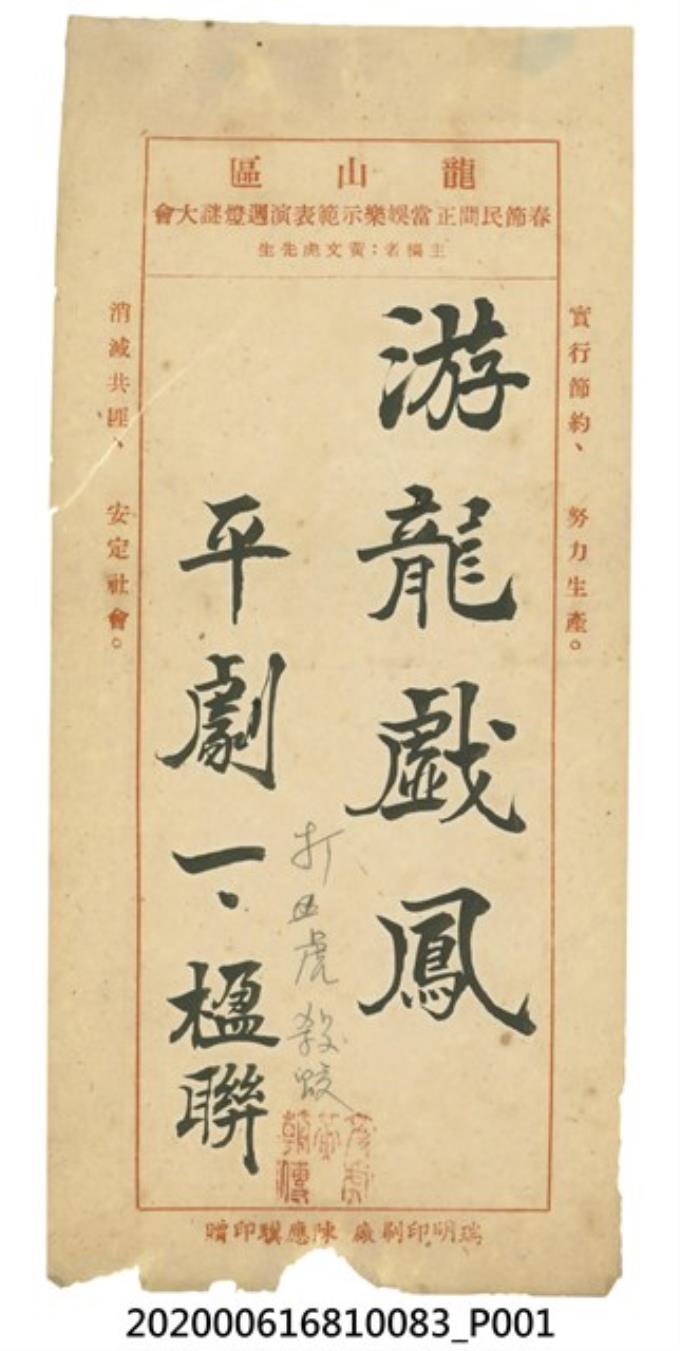 龍山區
春節民間正當娛樂示範表演週燈謎大會
主稿者：黃文虎先生
實行節約、 努力生產。
游龍戲鳳
打 虎 殺蛟
平劇一、楹聯
消滅共匪、 安定社會。
瑞明印刷廠 陳應騏印贈
202000616810083_P001